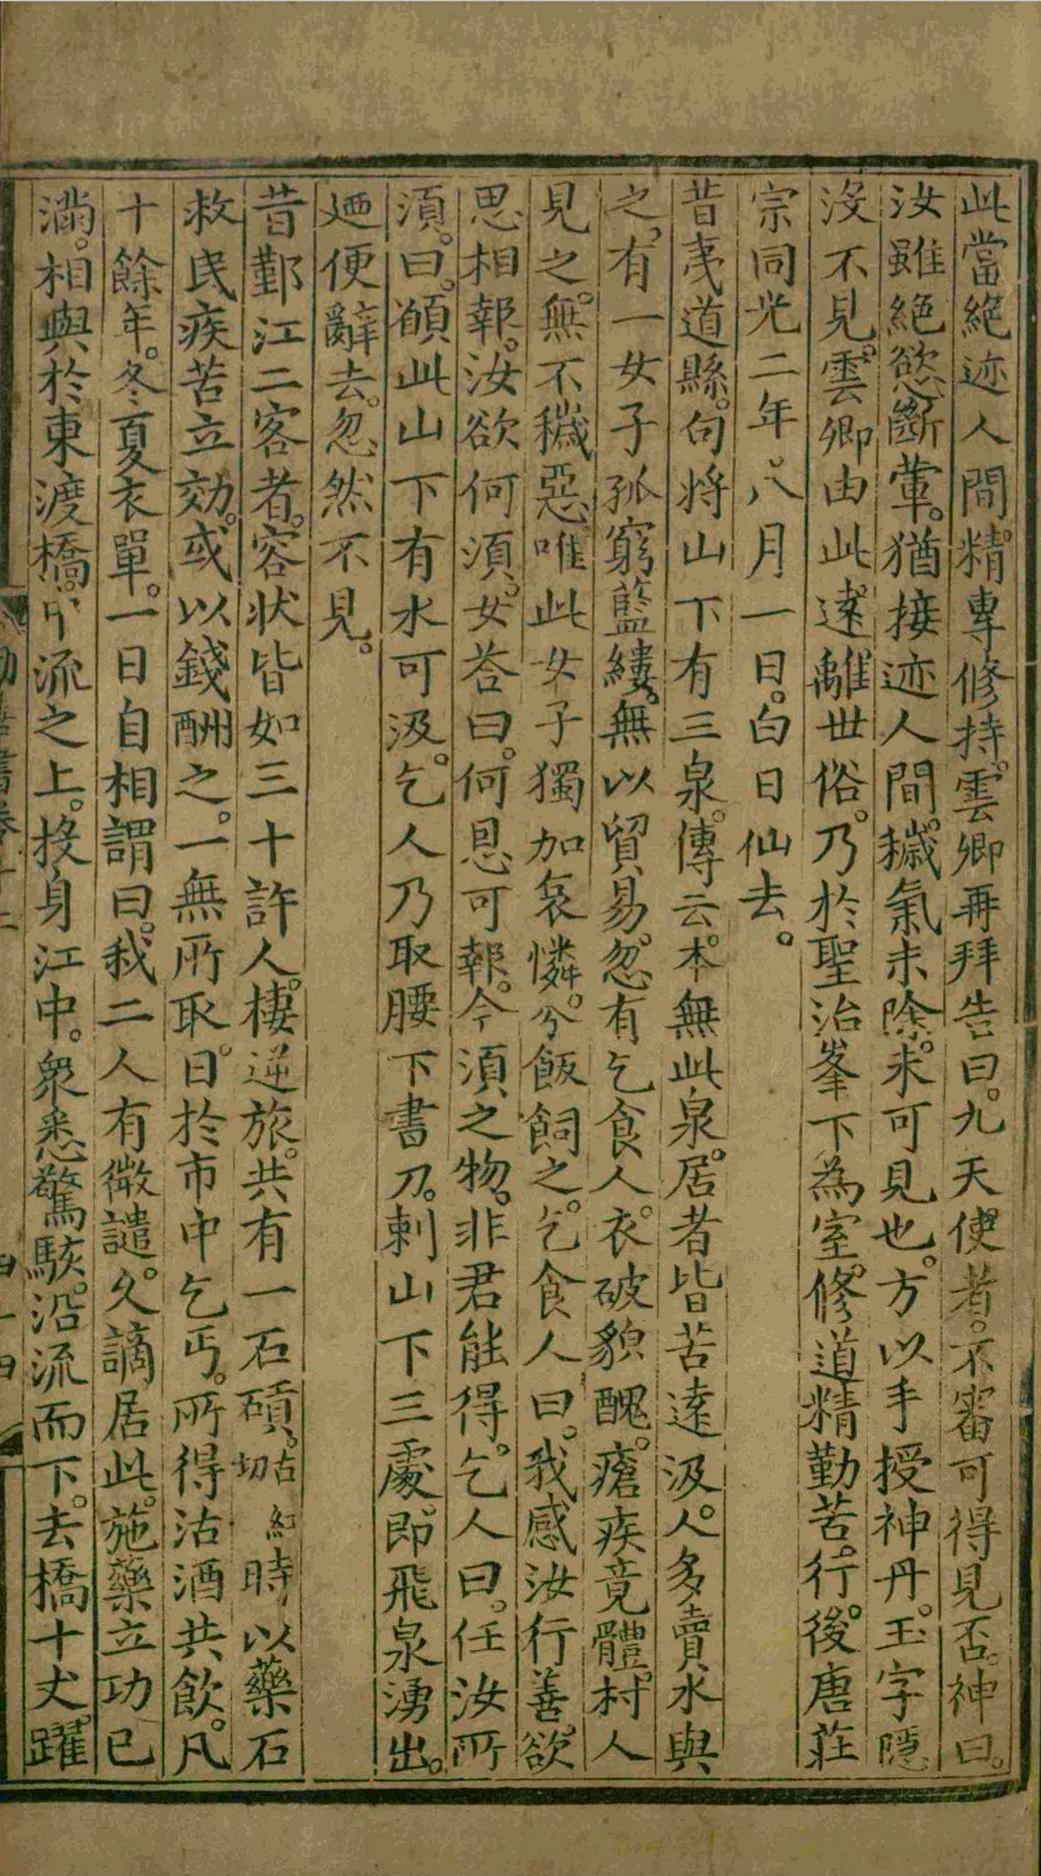 此當絕迹人間。精專修持。雲卿再拜告曰。九天使者。不審可得見否。神曰。
汝雖絕慾斷葷。猶接迹人間。穢氣未除。未可見也。方以手授神丹。玉字隱
沒不見。雲卿由此遠離世俗。乃於聖治峯下為室。修道精勤苦行。後唐莊
宗同光二年。八月一日。白日仙去。
昔夷道縣。句將山下有三泉。傳云。本無此泉。居者皆苦遠汲。人多賣水與
之。有一女子孤窮藍縷。無以貿易。忽有乞食人。衣破貌醜。瘡疾竟體。村人
見之。無不穢惡。唯此女子獨加哀憐。分飯飼之。乞食人曰。我感汝行善。欲
思相報。汝欲何須。女荅曰。何恩可報。今須之物。非君能得。乞人曰。任汝所
須。曰。願此山下有水可汲。乞人乃取腰下書刀。刺山下三處。即飛泉湧出。
廼便辭去。忽然不見。
昔鄞江二客者。容狀皆如三十許人。棲逆旅。共有一石碩。古紅切時以藥石
救民疾苦立効。或以錢酬之。一無所取。日於市中乞丐。所得沽酒共飲。凡
十餘年。冬夏衣單。一日自相謂曰。我二人有微譴。久謫居此。施藥立功已
滿。相與於東渡橋。中流之上。投身江中。衆悉驚駭。沿流而下。去橋十丈。躍
勸善書卷十二